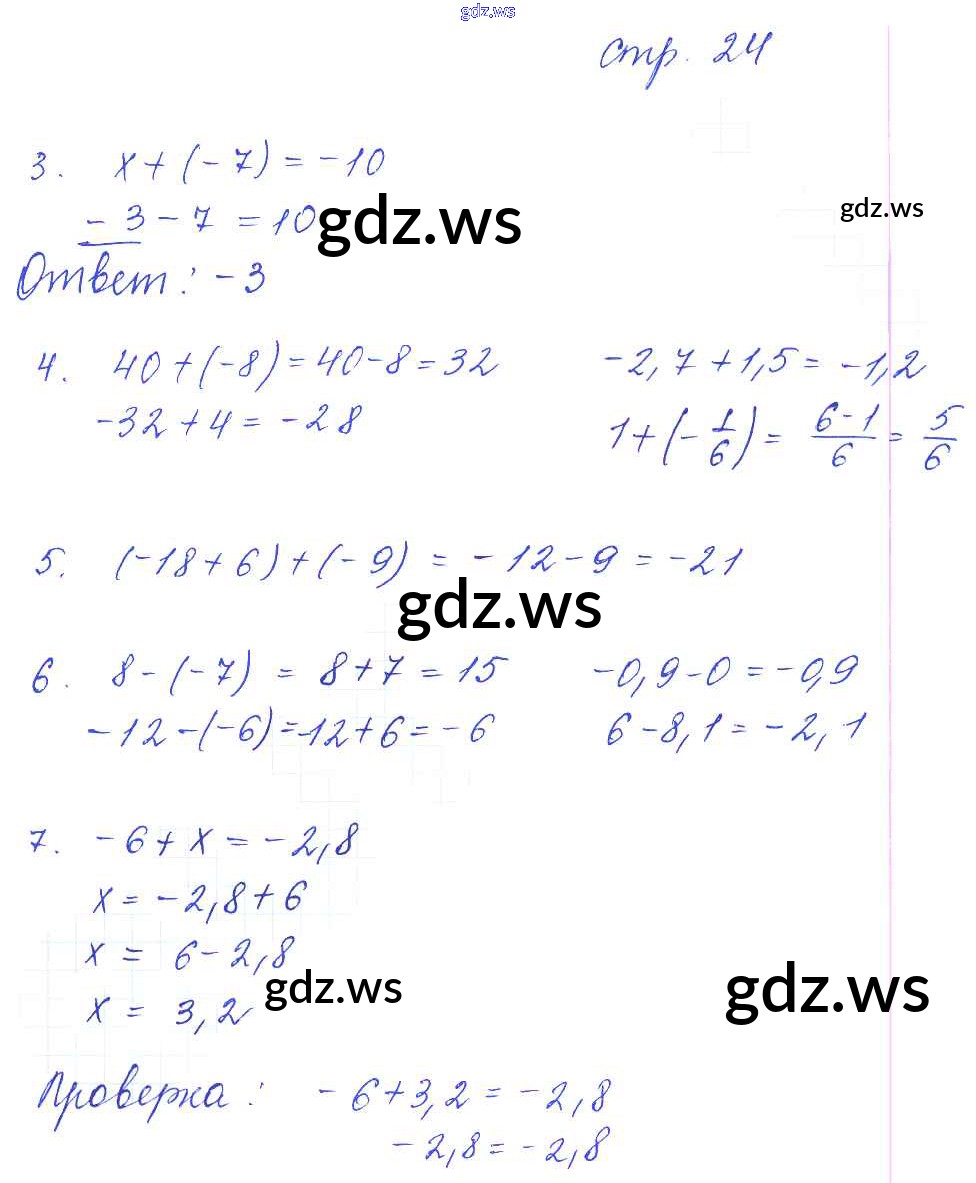 gdz.ws
стр. 24
3. x + (- 7) = - 10
- 3 - 7 = 10
gdz.ws
gdz.ws
Ответ: - 3
4. 40 + (-8) = 40 - 8 = 32
-32 + 4 = - 28
-2,7 + 1,5 = -1,2
1 + (- 1/6) = 6-1/6 = 5/6
5. (-18 + 6) + (- 9) = - 12 - 9 = -21
gdz.ws
6. 8 - (- 7) = 8 + 7 = 15
- 12 - (- 6) = -12 + 6 = - 6
-0,9 - 0 = -0,9
6 - 8,1 = - 2,1
7. - 6 + x = - 2,8
x = - 2,8 + 6
x = 6 - 2,8
x = 3,2
gdz.ws
gdz.ws
Проверка: - 6 + 3,2 = - 2,8
- 2,8 = - 2,8